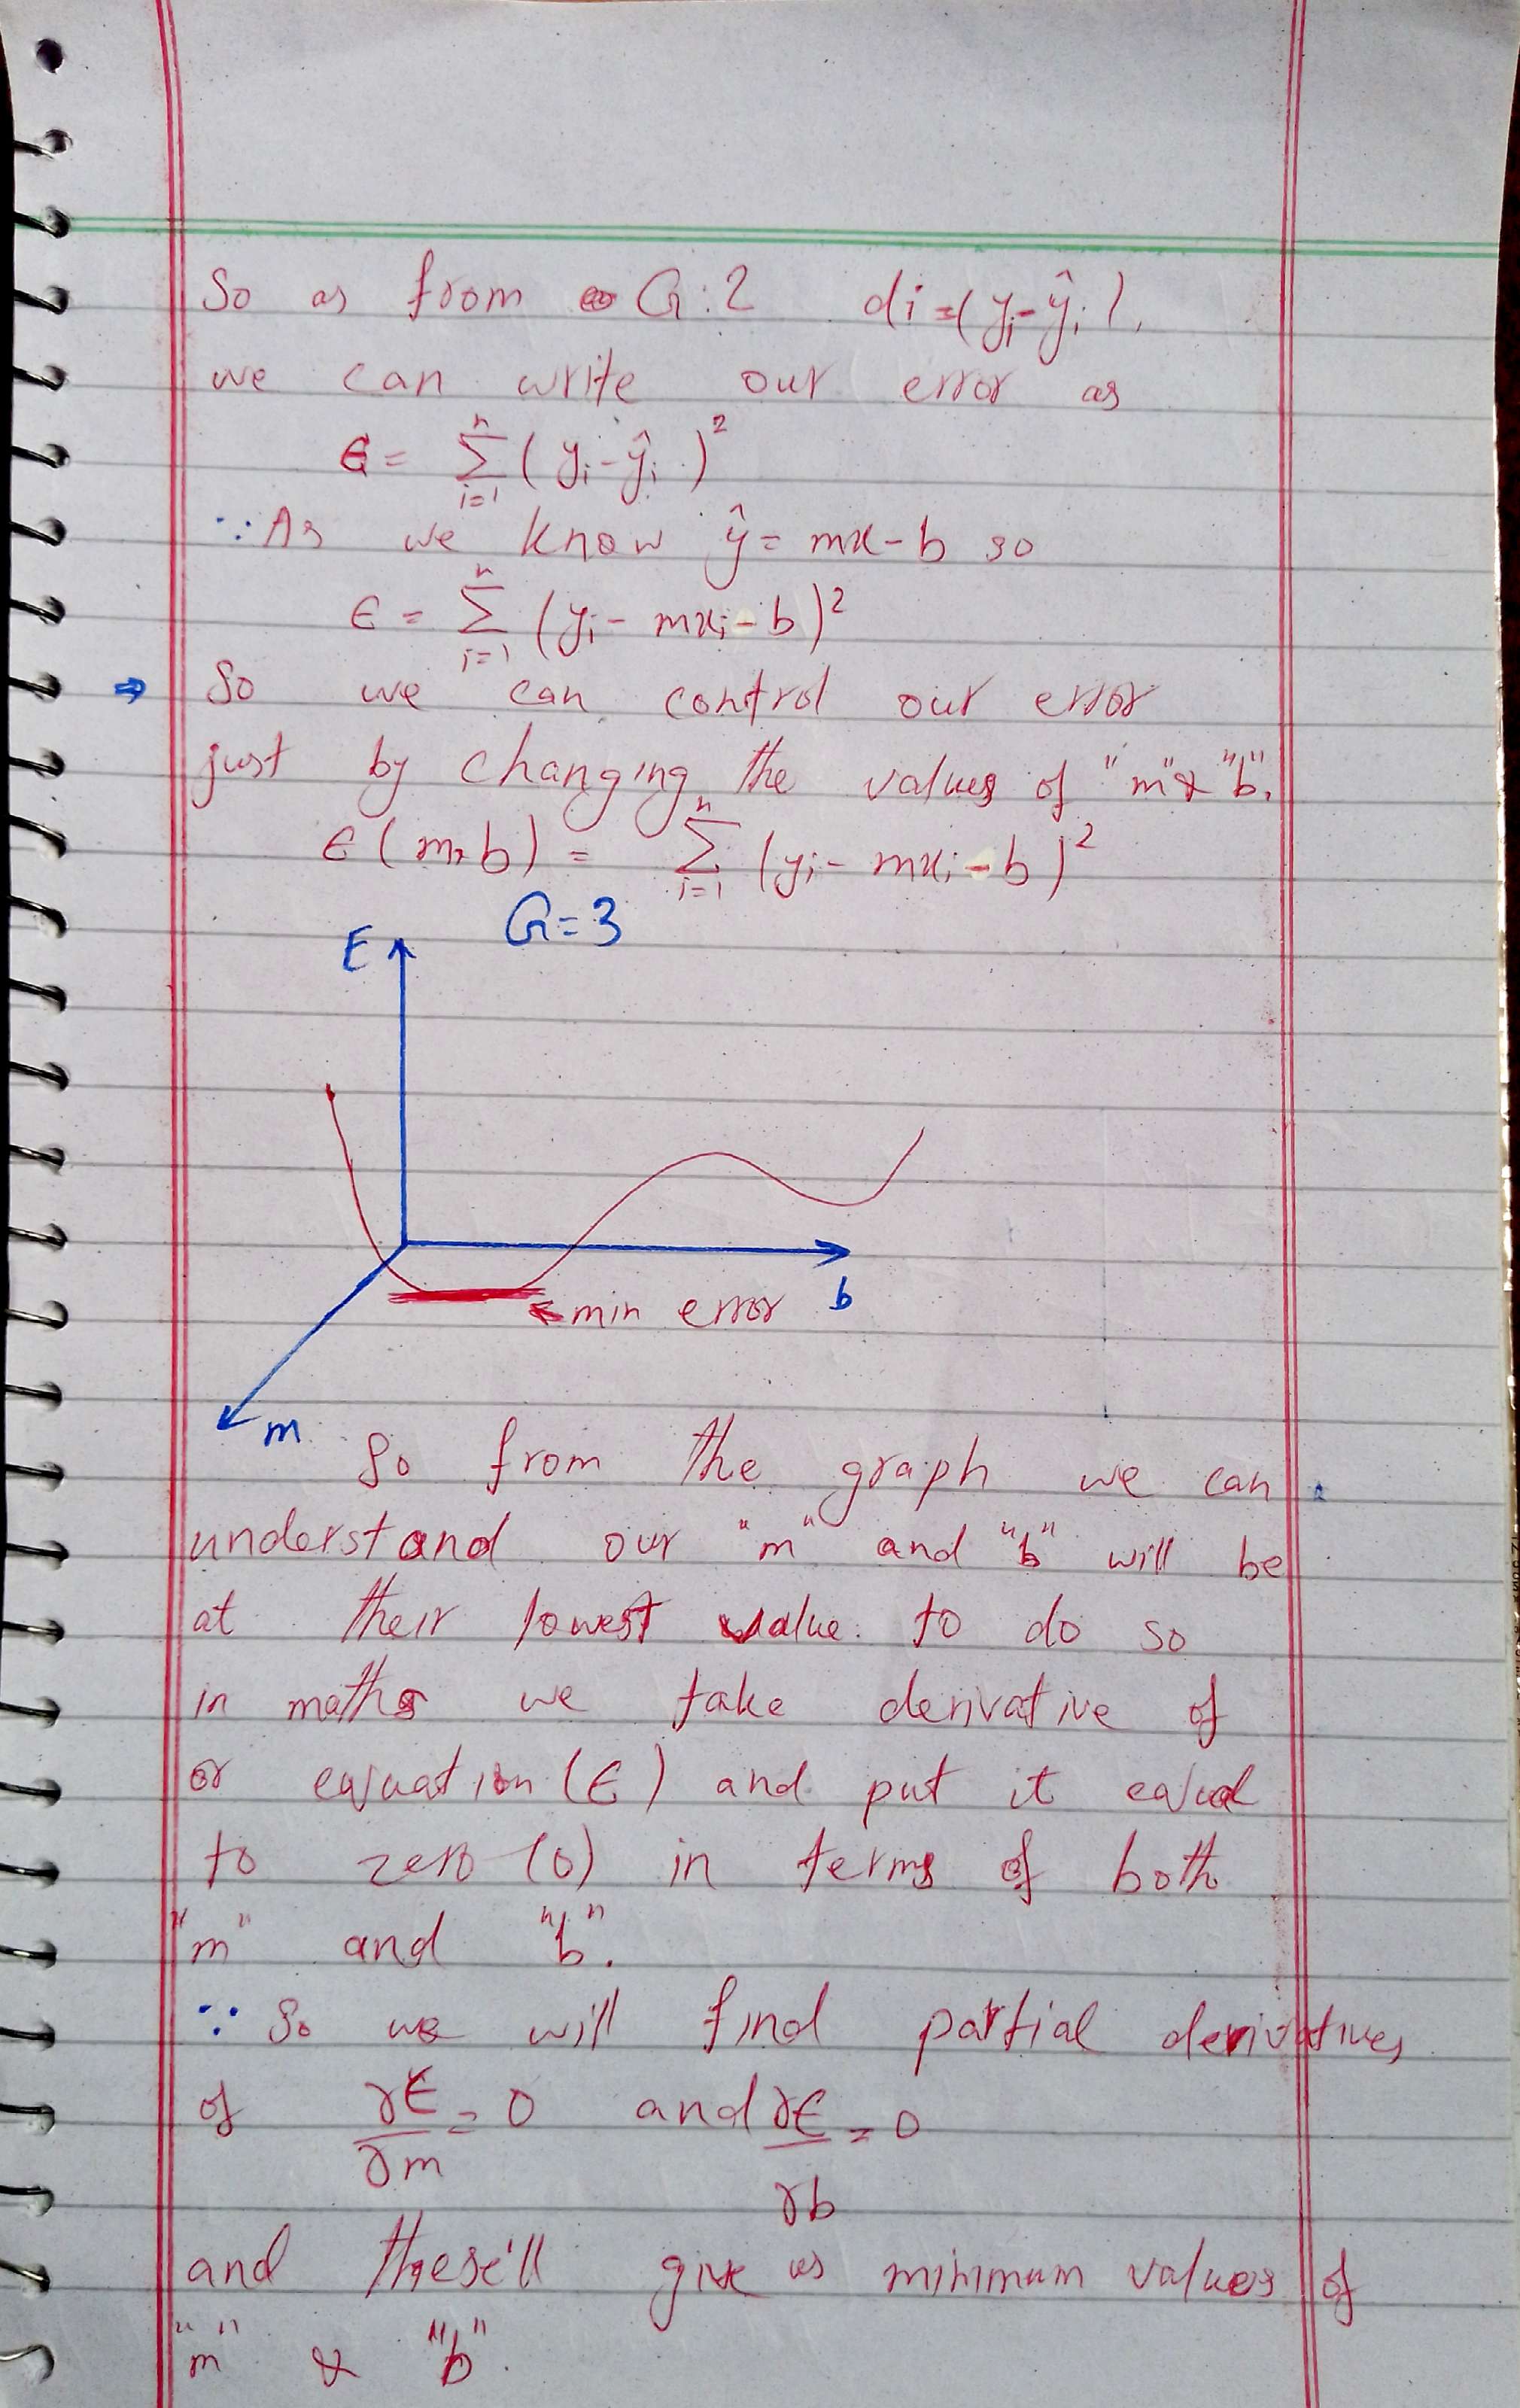 So as from G:2 di=(yi-ŷi),
we can write our error as
ϵ = Σ_{i=1}^{n} (yi-ŷi)²
∵ As we know ŷ = mx-b so
ϵ = Σ_{i=1}^{n} (yi - mxi - b)²
⇒ So we can control our error
just by changing the values of "m" & "b".
ϵ(m,b) = Σ_{i=1}^{n} (yi - mxi - b)²
G=3
E
b
← min error
m
So from the graph we can
understand our "m" and "b" will be
at their lowest value. to do so
in maths we take derivative of
or equation (ϵ) and put it equal
to zero (0) in terms of both
"m" and "b".
∵ So we will find partial derivatives
of ∂ϵ/∂m = 0 and ∂ϵ/∂b = 0
and these'll give us minimum values of
"m" & "b".